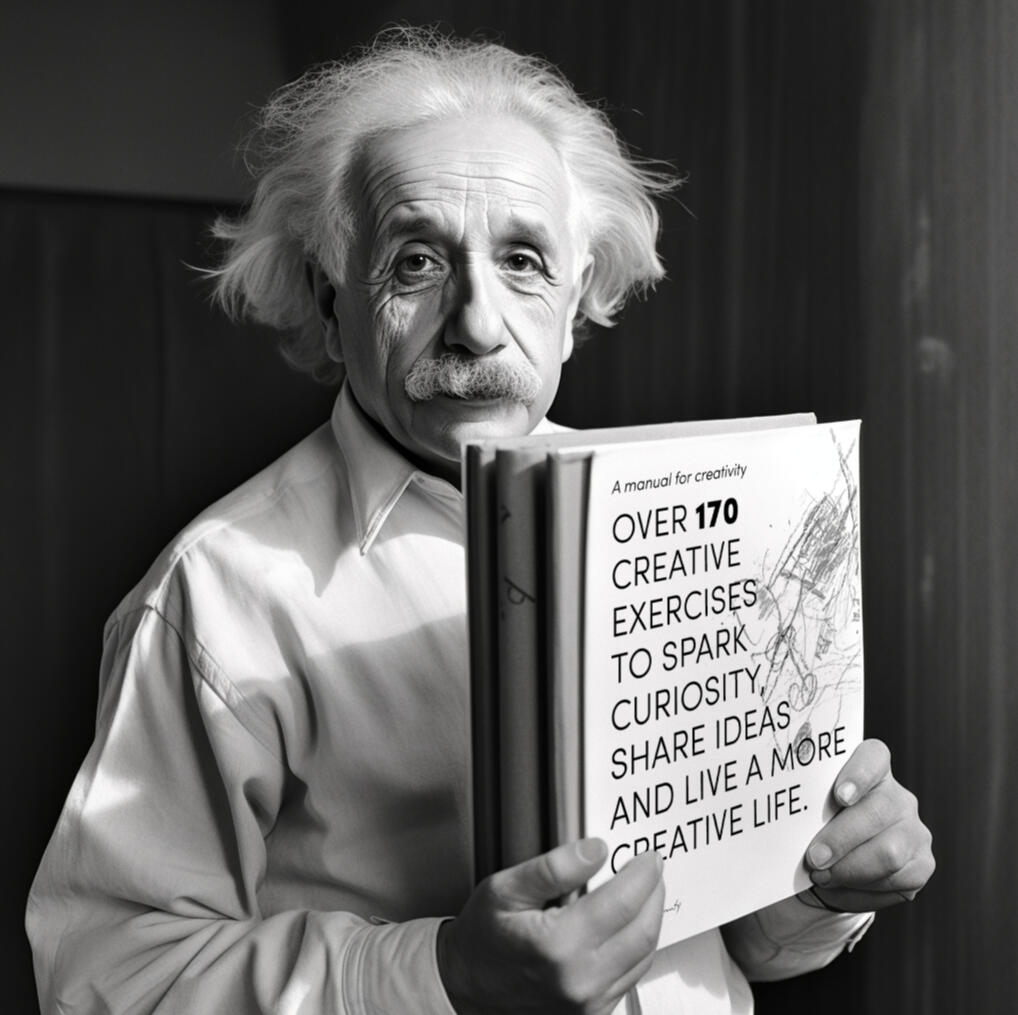 A manual for creativity
OVER 170
CREATIVE
EXERCISES
TO SPARK
CURIOSITY,
SHARE IDEAS
AND LIVE A MORE
CREATIVE LIFE.